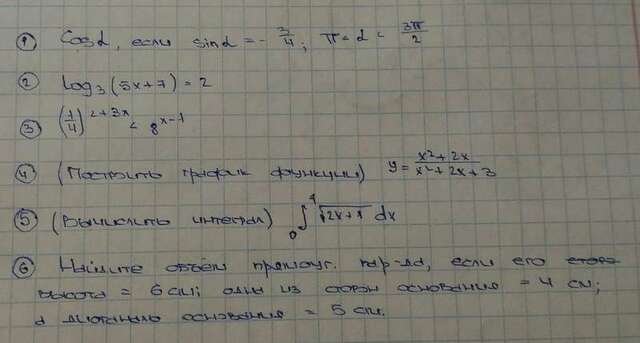 ① Cosα, если sinα = -3/4; π < α < 3π/2
② log₃(5x+7) = 2
③ (1/4)^(2+3x) < 8^(x-1)
④ (Построить график функции) y = (x²+2x)/(x²+2x+3)
⑤ (Вычислить интеграл) ∫₀⁴ √(2x+x) dx
⑥ Найдите объём прямоуг. пар-да, если его
высота = 6 см; одна из сторон основания = 4 см;
а диагональ основания = 5 см.